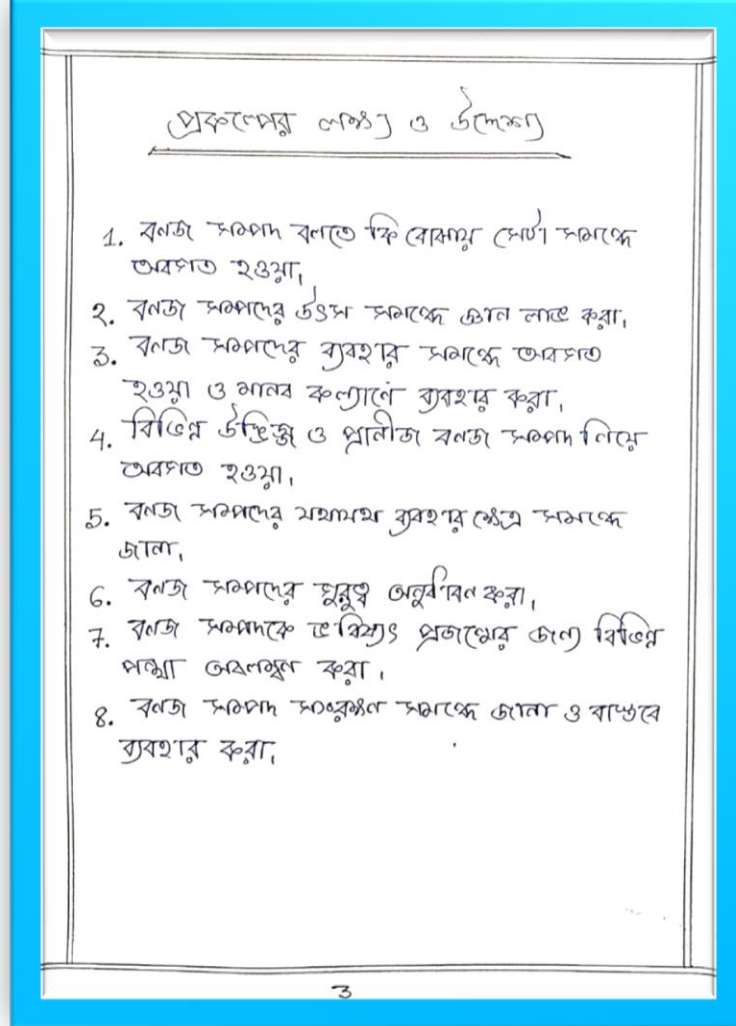 প্রকল্পের লক্ষ্য ও উদ্দেশ্য
1. বনজ সম্পদ বলতে কি বোঝায় সেটা সমন্ধে
অবগত হওয়া,
২. বনজ সম্পদের উৎস সমন্ধে জ্ঞান লাভ করা,
3. বনজ সম্পদের ব্যবহার সমন্ধে অবগত
হওয়া ও মানব কল্যাণে ব্যবহার করা,
4. বিভিন্ন উদ্ভিজ্জ ও প্রাণীজ বনজ সম্পদ নিয়ে
অবগত হওয়া,
5. বনজ সম্পদের যথাযথ ব্যবহার ক্ষেত্র সমন্ধে
জানা,
6. বনজ সম্পদের গুরুত্ব অনুধাবন করা,
7. বনজ সম্পদকে ভবিষ্যৎ প্রজন্মের জন্য বিভিন্ন
পন্থা অবলম্বন করা।
8. বনজ সম্পদ সংরক্ষণ সমন্ধে জানা ও বাস্তবে
ব্যবহার করা,
3